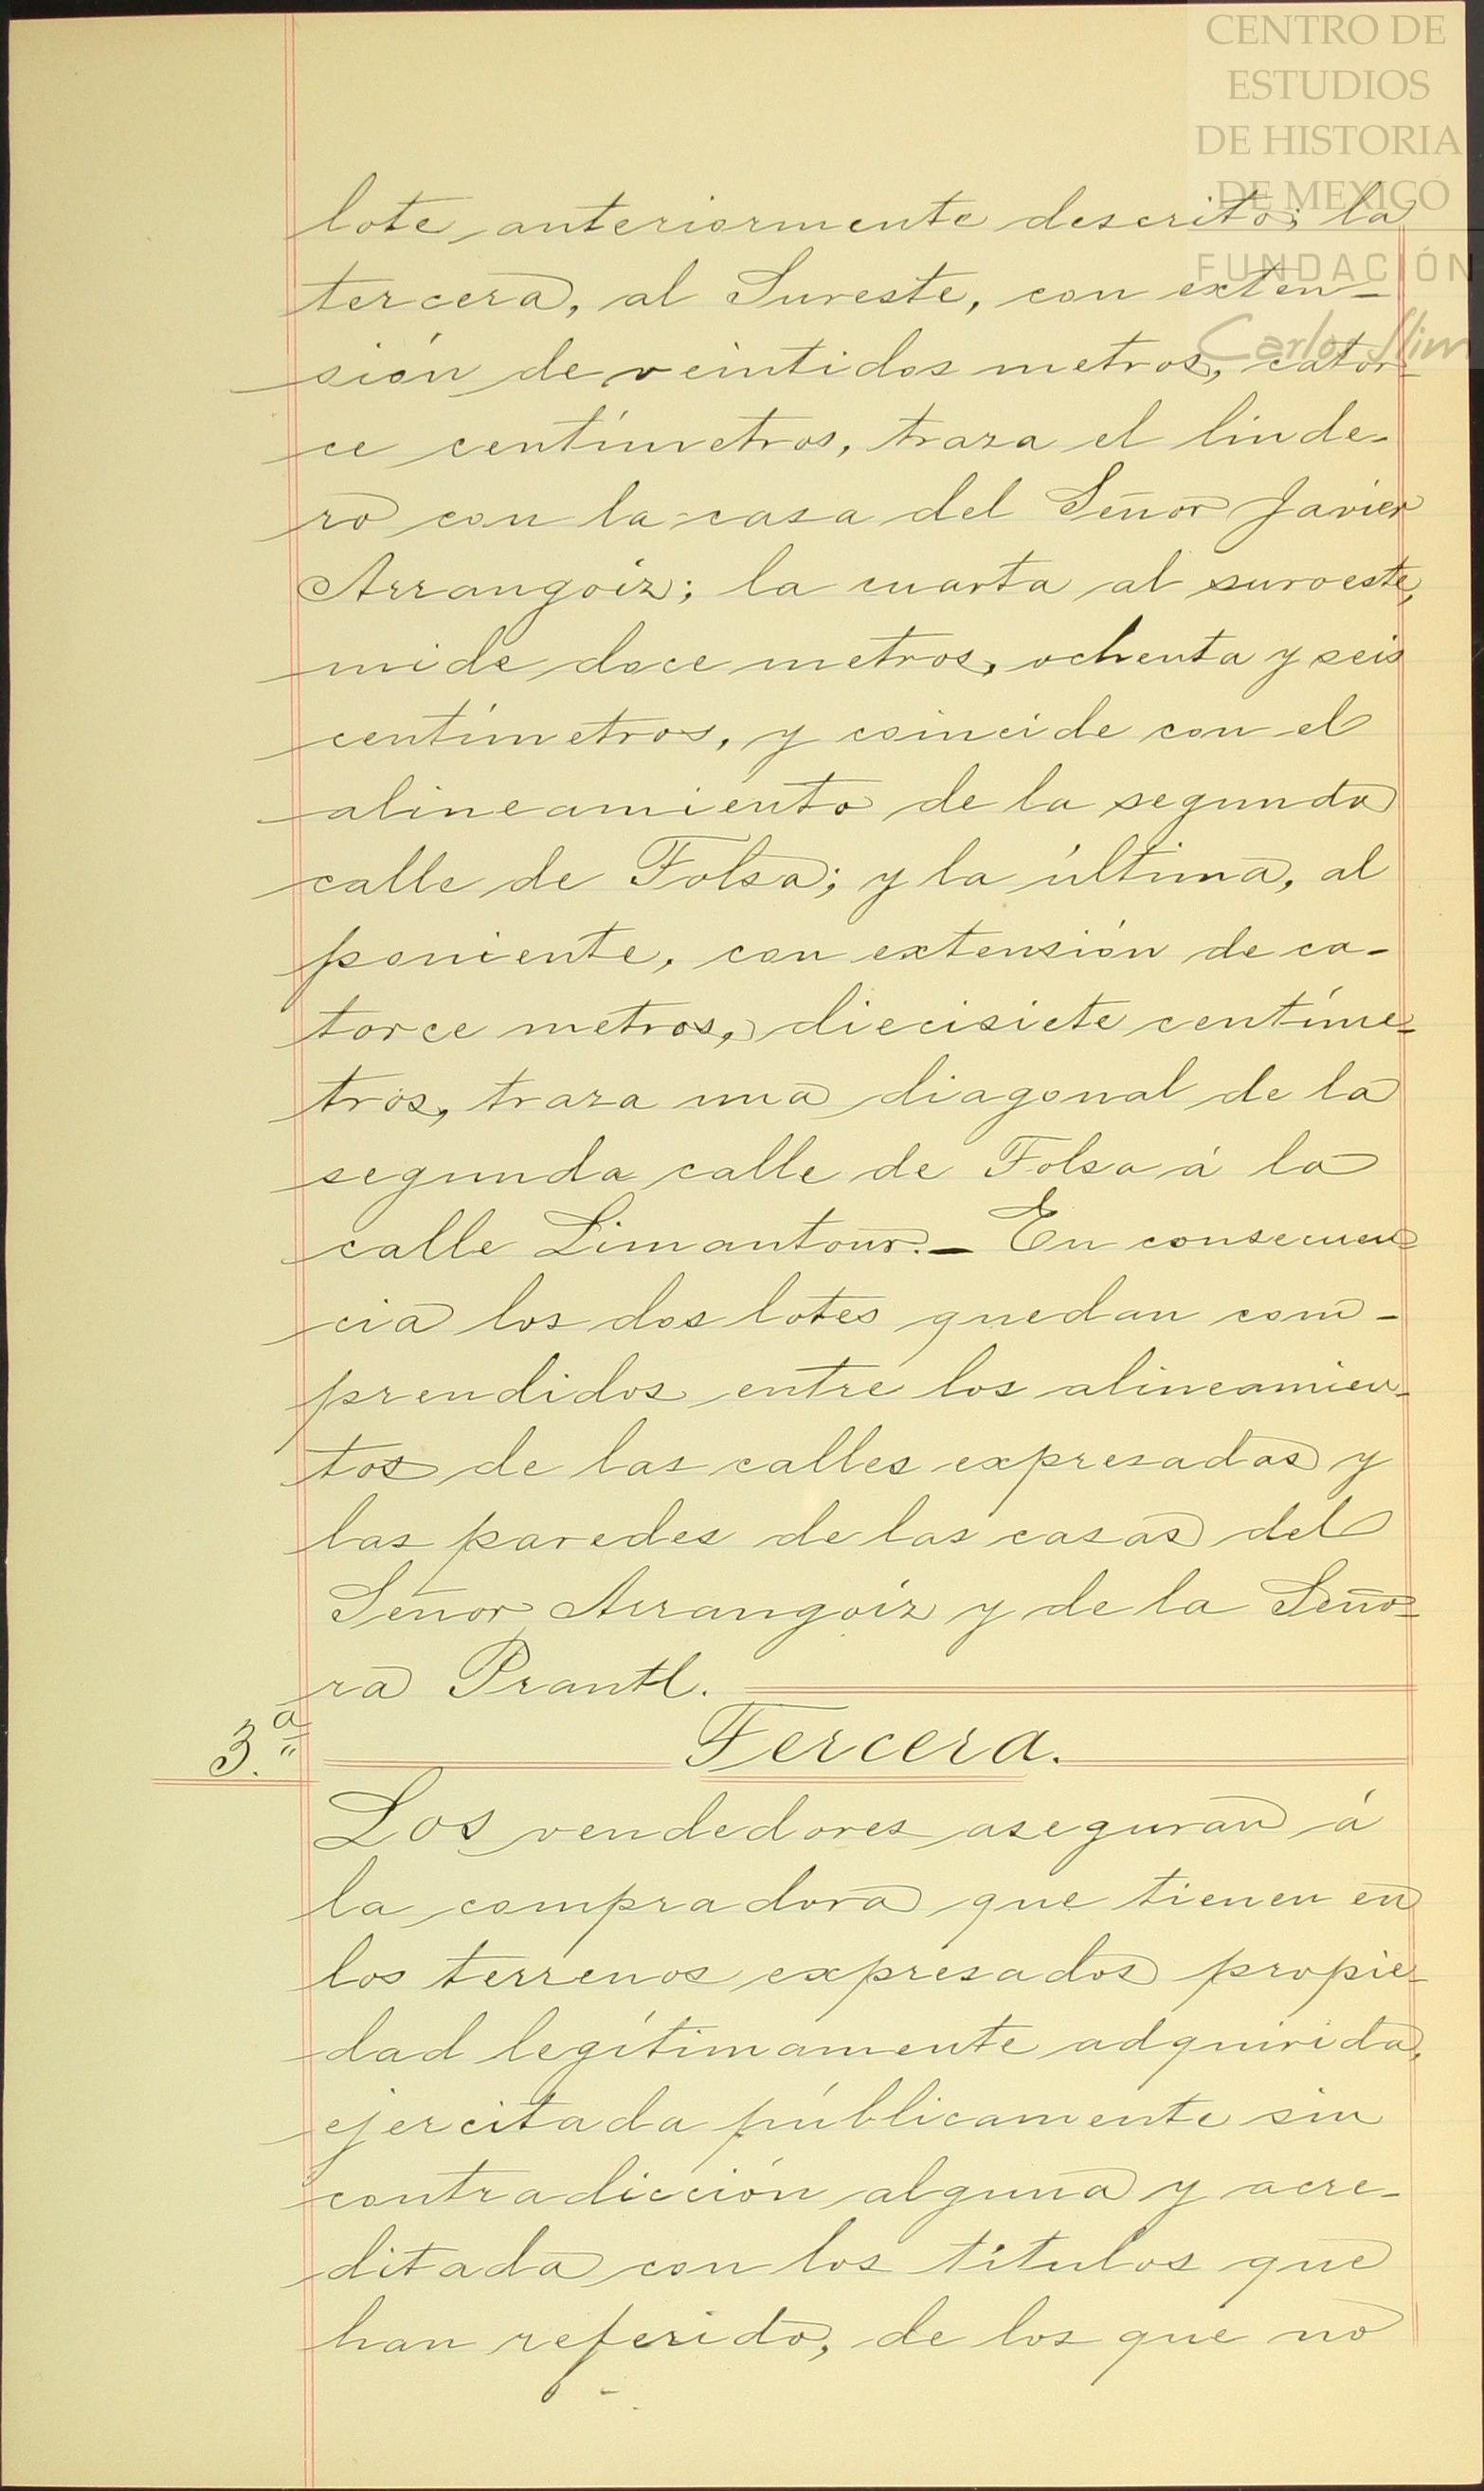 CENTRO DE
ESTUDIOS
DE HISTORIA
DE MEXICO
FUNDACIÓN
Carlos Slim
lote anteriormente descrito; la
tercera, al Sureste, con exten-
sión de veintidos metros, cator-
ce centímetros, traza el linde-
ro con la casa del Señor Javier
Arrangoiz; la cuarta al suroeste,
mide doce metros, ochenta y seis
centímetros, y coincide con el
alineamiento de la segunda
calle de Tolsa; y la última, al
poniente, con extensión de ca-
torce metros, diecisiete centíme-
tros, traza una diagonal de la
segunda calle de Tolsa á la
calle Limantour.- En consecuen
cia los dos lotes quedan com-
prendidos entre los alineamien-
tos de las calles expresadas y
las paredes de las casas del
Señor Arrangoiz y de la Seño-
ra Prantl.
3.ª Tercera.
Los vendedores aseguran á
la compradora que tienen en
los terrenos expresados propie-
dad legítimamente adquirida,
ejercitada públicamente sin
contradicción alguna y acre-
ditada con los títulos que
han referido, de los que no